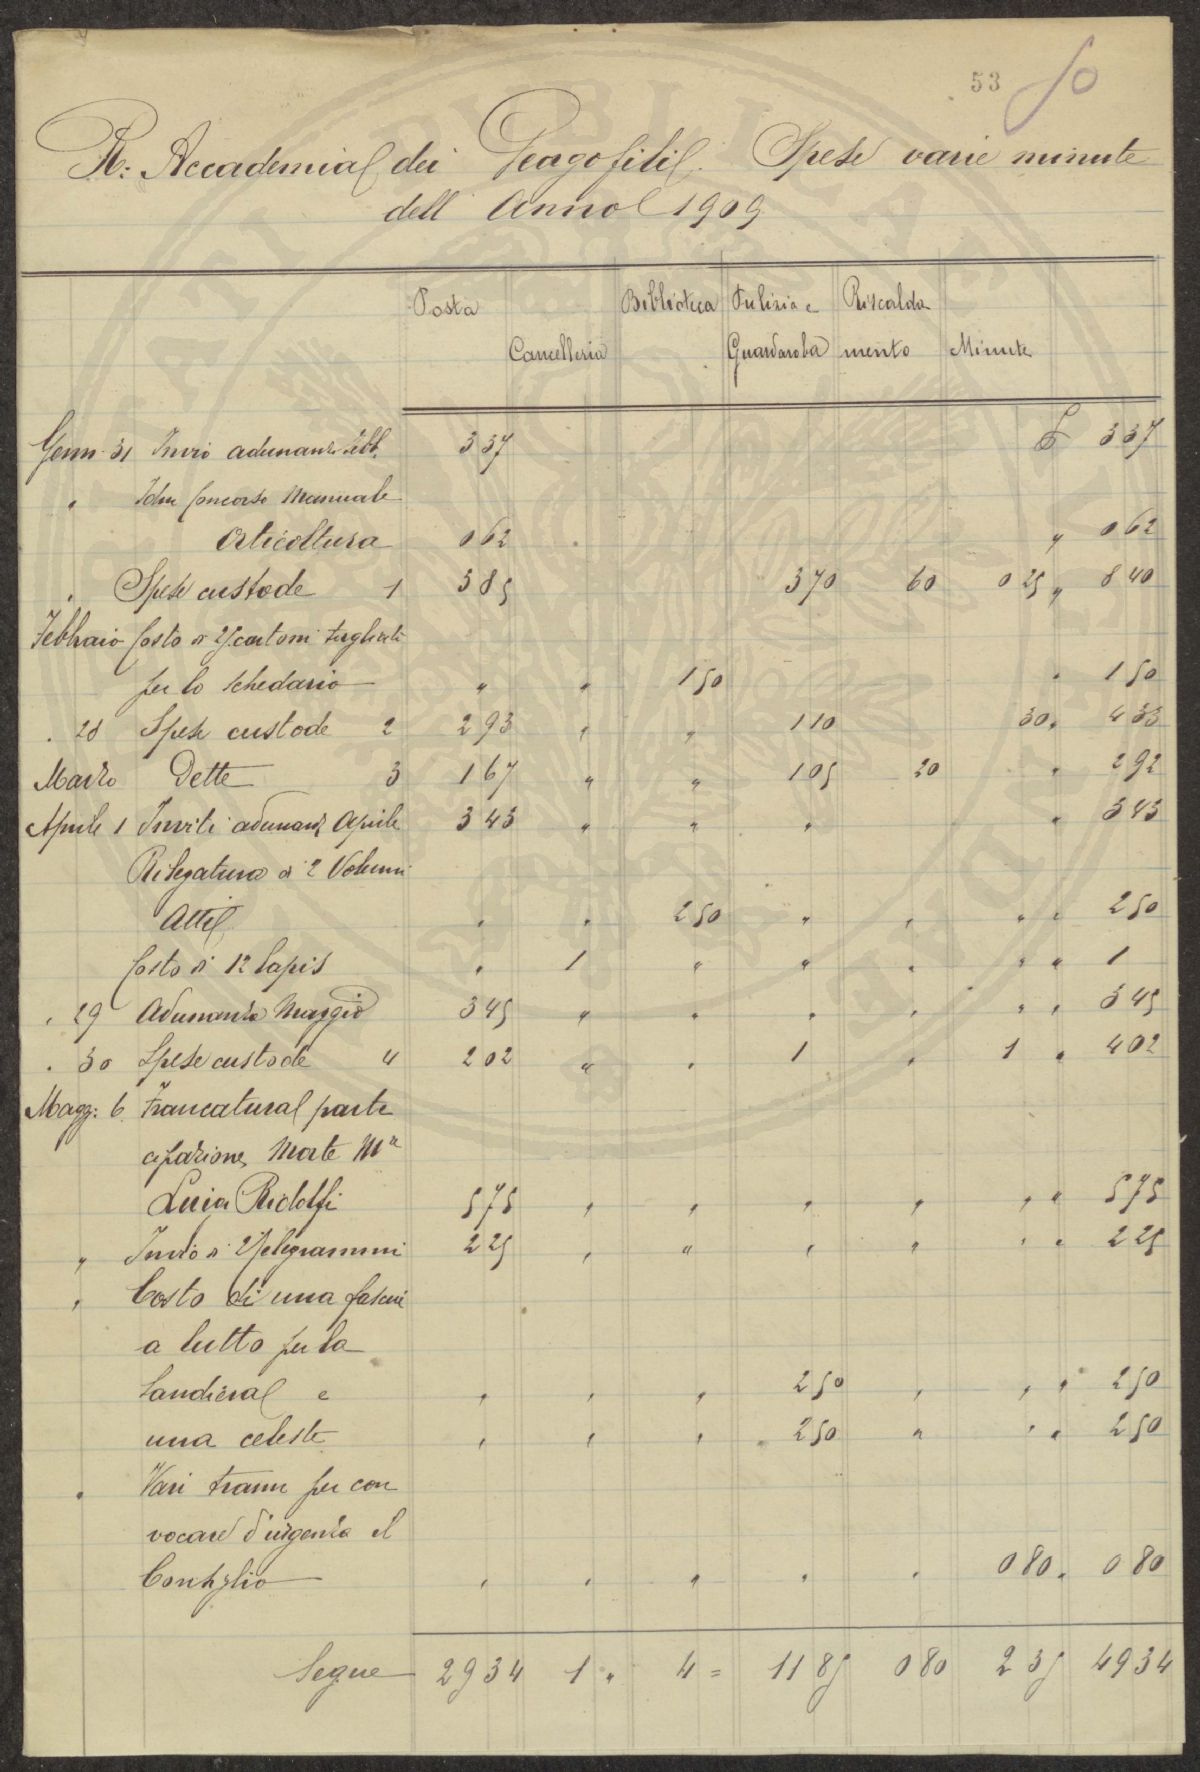 53 50
R: Accademia dei Georgofili. Spese varie minute
dell' Anno 1909
Posta Biblioteca Pulizia e Riscalda
Cancelleria Guardaroba mento Minute
Genn. 31 Invio adunanze Febb. 3 37 £ 3 37
" Idem Concorso Manuale
Orticoltura 0 62 " 0 62
" Spese custode 1 3 85 3 70 60 0 25 " 8 40
Febbraio Costo di 27 cartoni tagliati
per lo schedario " " 1 50 " 1 50
" 28 Spese custode 2 2 93 " " 1 10 30 " 4 33
Marzo Dette 3 1 67 " " 1 05 20 " 2 92
Aprile 1 Inviti adunanz Aprile 3 43 " " " " 3 43
Rilegatura di 2 Volumi
Atti " " 2 50 " " " " 2 50
Costo di 12 lapis " 1 " " " " " 1
" 29 Adunanza Maggio 3 45 " " " " " " 3 45
" 30 Spese custode 4 2 02 " " 1 " 1 " 4 02
Magg: 6 Francatura parte
cipazione Morte Mse
Luigi Ridolfi 5 75 " " " " " " 5 75
" Invio di 2 Telegrammi 2 25 " " " " " " 2 25
" Costo di una fascia
a lutto per la
bandiera e " " " 2 50 " " " 2 50
una celeste " " " 2 50 " " " 2 50
" Vari tram per con
vocare d'urgenza il
Consiglio " " " " " 0 80 " 0 80
Segue 29 34 1 " 4 = 11 85 0 80 2 35 49 34